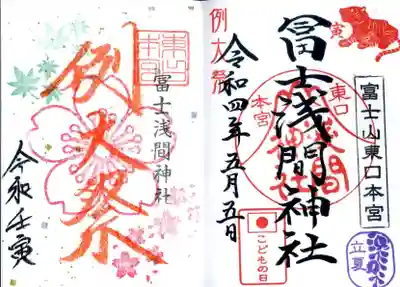 例大祭
寅
冨士浅間神社
令和四年五月五日
東口
本宮
富士山東口本宮
こどもの日
立夏
例大祭
冨士浅間神社
令和壬寅